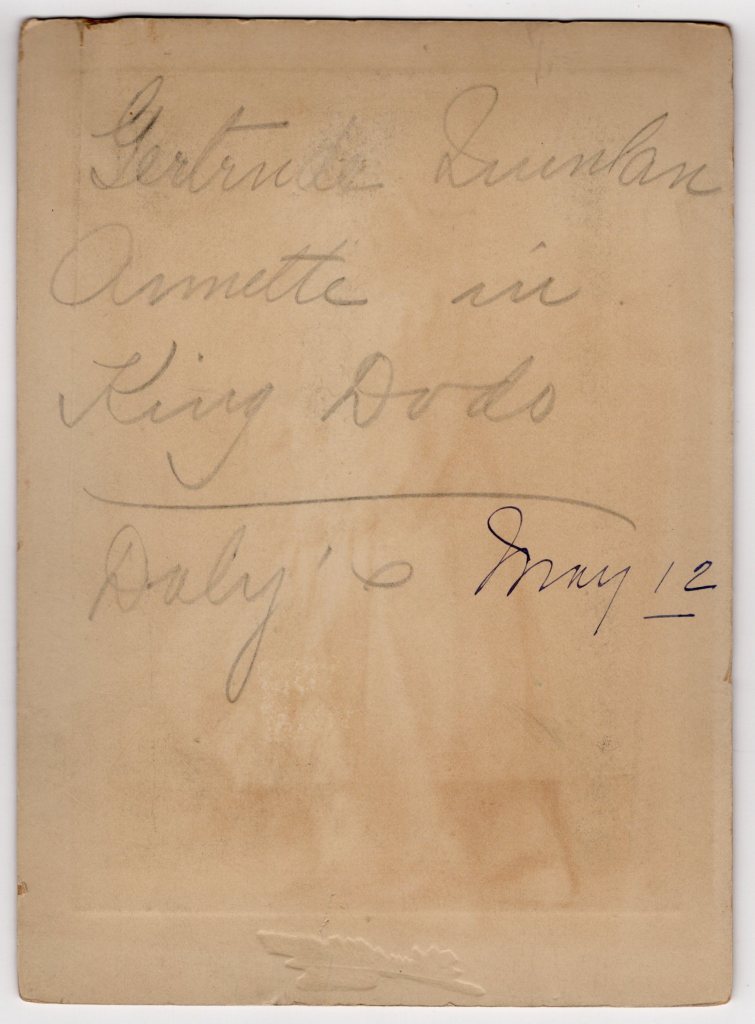 Gertrude Quinlan
Annette in
King Dodo
Daly's May 12